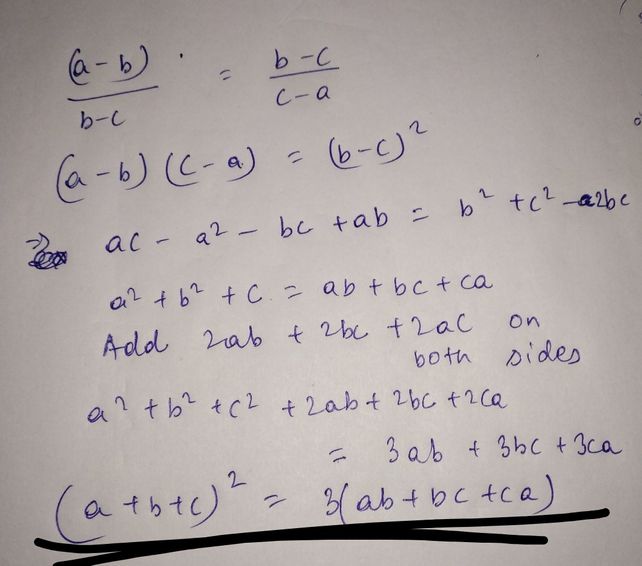 (a-b)/(b-c) = (b-c)/(c-a)
(a-b)(c-a) = (b-c)²
⇒ ac - a² - bc + ab = b² + c² - 2bc
a² + b² + c = ab + bc + ca
Add 2ab + 2bc + 2ac on
both sides
a² + b² + c² + 2ab + 2bc + 2ca
= 3ab + 3bc + 3ca
(a+b+c)² = 3(ab + bc + ca)